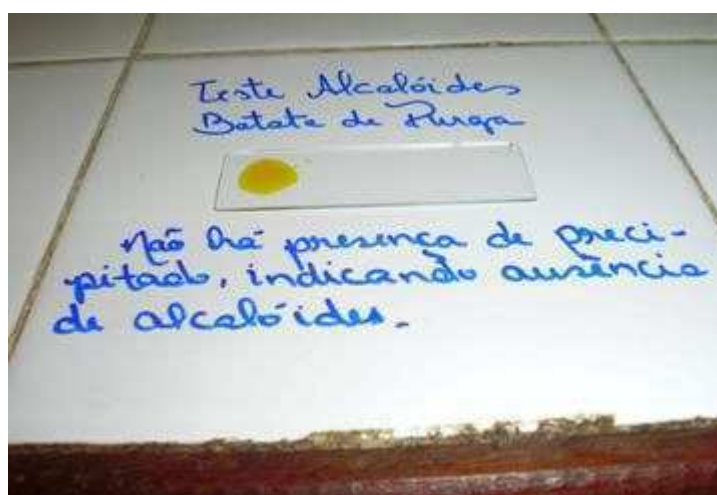 Teste Alcalóides
Batata de Purga
Não há presença de preci-
pitado, indicando ausência
de alcalóides.